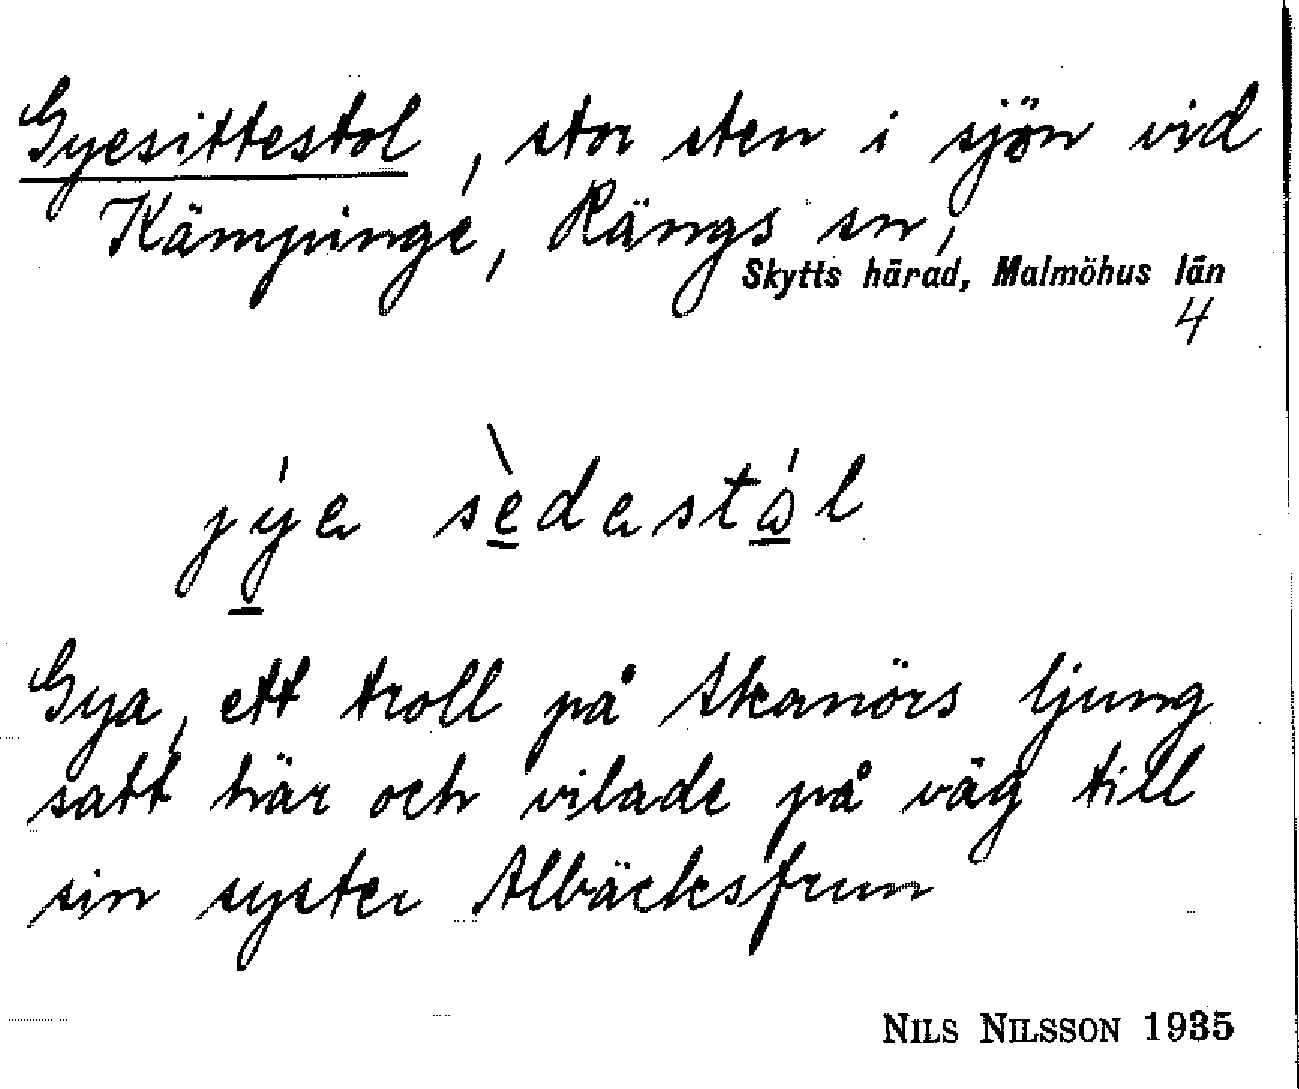 Gyesittestol, stor sten i sjön vid
Kämpinge, Rängs sn,
Skytts härad, Malmöhus län
4
jýe sèdestål
Gya, ett troll på Skanörs ljung
satt här och vilade på väg till
sin syster Albäcksfrun
NILS NILSSON 1935